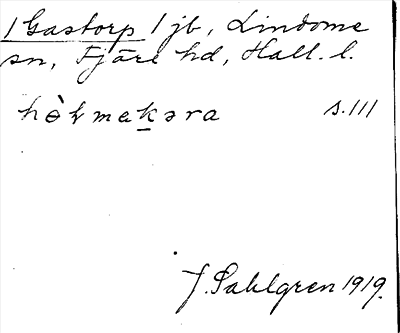 1 Gastorp 1 jb, Lindome
sn, Fjäre hd, Hall. l.
hѳ̀kmakəra s.111
J. Sahlgren 1919.